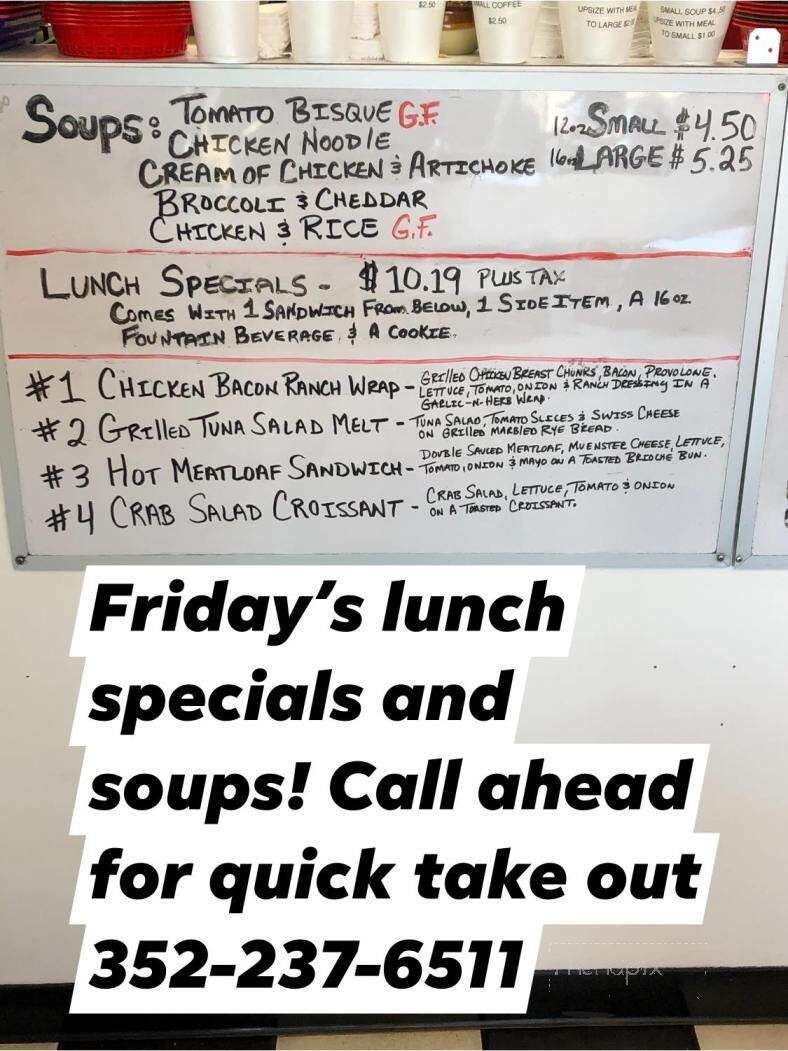 $2.50
ALL COFFEE
$2.50
UPSIZE WITH MEAL
TO LARGE $2
SMALL SOUP $4.50
UPSIZE WITH MEAL
TO SMALL $1.00
SOUPS: TOMATO BISQUE G.F.
CHICKEN NOODLE
CREAM OF CHICKEN & ARTICHOKE
BROCCOLI & CHEDDAR
CHICKEN & RICE G.F.
12oz SMALL $4.50
16oz LARGE $5.25
LUNCH SPECIALS - $10.19 PLUS TAX
COMES WITH 1 SANDWICH FROM BELOW, 1 SIDE ITEM, A 16 oz
FOUNTAIN BEVERAGE, & A COOKIE.
#1 CHICKEN BACON RANCH WRAP - GRILLED CHICKEN BREAST CHUNKS, BACON, PROVOLONE,
LETTUCE, TOMATO, ONION & RANCH DRESSING IN A
GARLIC-N-HERB WRAP.
#2 GRILLED TUNA SALAD MELT - TUNA SALAD, TOMATO SLICES & SWISS CHEESE
ON GRILLED MARBLED RYE BREAD.
#3 HOT MEATLOAF SANDWICH - DOUBLE SAUCED MEATLOAF, MUENSTER CHEESE, LETTUCE,
TOMATO, ONION & MAYO ON A TOASTED BRIOCHE BUN.
#4 CRAB SALAD CROISSANT - CRAB SALAD, LETTUCE, TOMATO & ONION
ON A TOASTED CROISSANT.
Friday's lunch
specials and
soups! Call ahead
for quick take out
352-237-6511
menupix